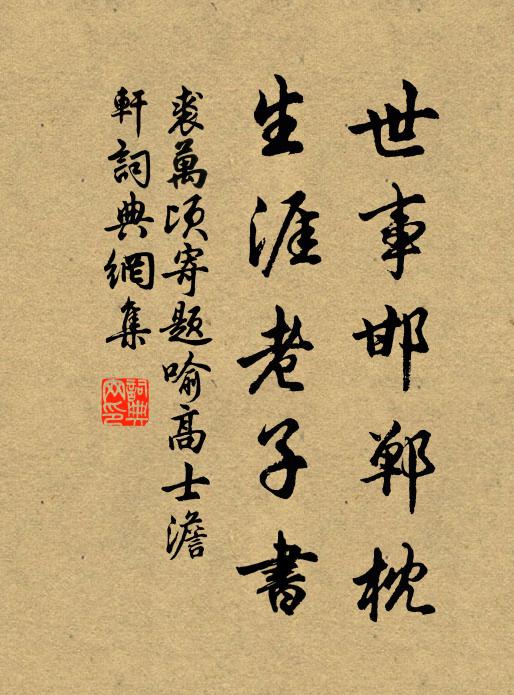 世事邯鄲枕
生涯老子書
裘萬頃寄題喻高士澹
軒詞典網集
詞典